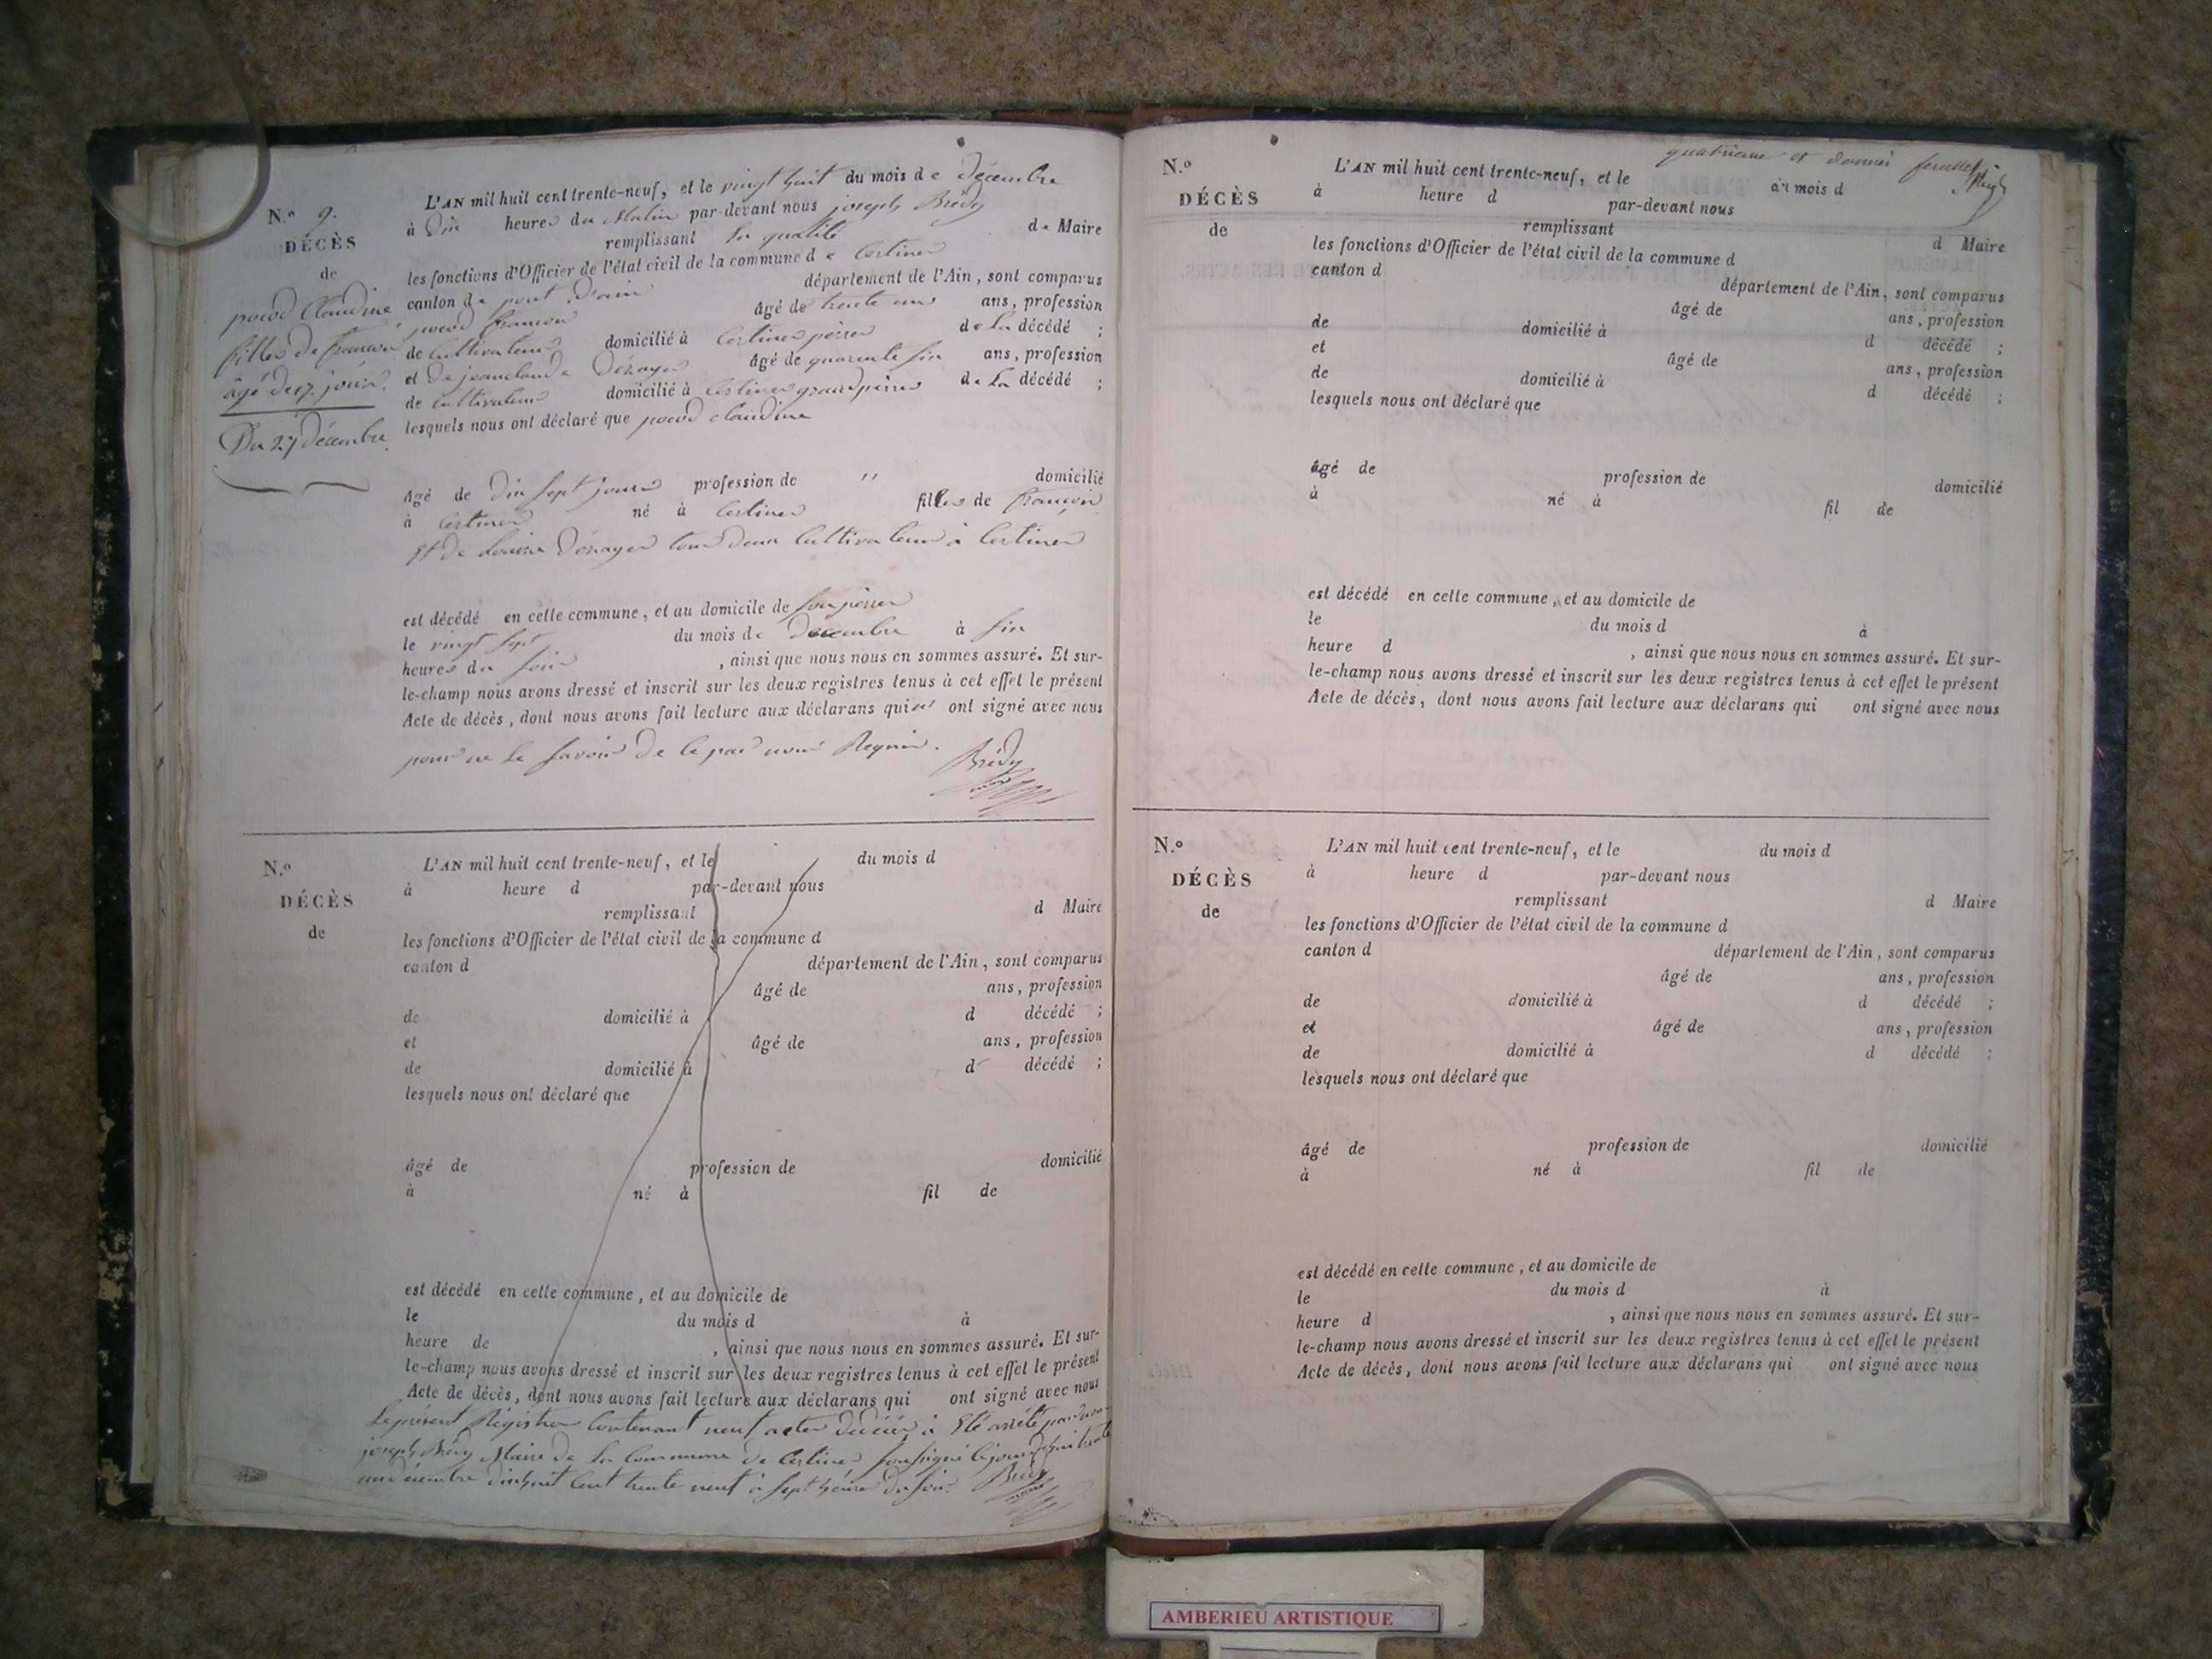 N.° 9.
DÉCÈS
de
pocod Claudine
filles de françois
âgé de 17 jours.
Du 27 décembre.
L'AN mil huit cent trente-neuf, et le vingt huit du mois de décembre
à dix heures du Matin par-devant nous joseph Brédy
remplissant la qualité de Maire
les fonctions d'Officier de l'état civil de la commune de Certines
canton de pont d'ain département de l'Ain, sont comparus
pocod françois âgé de trente un ans, profession
de Cultivateur domicilié à Certines père de la décédé ;
et de jeanclaude âgé de quarente six ans, profession
de cultivateur domicilié à Certines grandpère de la décédé ;
lesquels nous ont déclaré que pocod claudine
âgé de dix sept jours profession de " domicilié
à Certines né à Certines filles de françois
et de Louise tous deux Cultivateurs à Certines
est décédé en cette commune, et au domicile de son père
le vingt sept du mois de décembre à six
heures du soir , ainsi que nous nous en sommes assuré. Et sur-
le-champ nous avons dressé et inscrit sur les deux registres tenus à cet effet le présent
Acte de décès, dont nous avons fait lecture aux déclarans qui n' ont signé avec nous
pour ne le savoir de ce par nous Requis. Brédy
N.°
DÉCÈS
de
L'AN mil huit cent trente-neuf, et le du mois d
à heure d par-devant nous
remplissant d Maire
les fonctions d'Officier de l'état civil de la commune d
canton d département de l'Ain, sont comparus
âgé de ans, profession
de domicilié à d décédé ;
et âgé de ans, profession
de domicilié à d décédé ;
lesquels nous ont déclaré que
âgé de profession de domicilié
à né à fil de
est décédé en cette commune, et au domicile de
le du mois d à
heure de , ainsi que nous nous en sommes assuré. Et sur-
le-champ nous avons dressé et inscrit sur les deux registres tenus à cet effet le présent
Acte de décès, dont nous avons fait lecture aux déclarans qui ont signé avec nous
Le présent Régistre Contenant neuf actes décéés à Eté arrêté par nous
joseph Brédy Maire de la Commune de Certines soussigné le jourd'hui trente
un décembre dixhuit cent trente neuf à sept heures du soir. Brédy
quatrieme et dernier feuillet
N.°
DÉCÈS
de
L'AN mil huit cent trente-neuf, et le du mois d
à heure d par-devant nous
remplissant d Maire
les fonctions d'Officier de l'état civil de la commune d
canton d département de l'Ain, sont comparus
âgé de ans, profession
de domicilié à d décédé ;
et âgé de ans, profession
de domicilié à d décédé ;
lesquels nous ont déclaré que
âgé de profession de domicilié
à né à fil de
est décédé en cette commune, et au domicile de
le du mois d à
heure d , ainsi que nous nous en sommes assuré. Et sur-
le-champ nous avons dressé et inscrit sur les deux registres tenus à cet effet le présent
Acte de décès, dont nous avons fait lecture aux déclarans qui ont signé avec nous
N.°
DÉCÈS
de
L'AN mil huit cent trente-neuf, et le du mois d
à heure d par-devant nous
remplissant d Maire
les fonctions d'Officier de l'état civil de la commune d
canton d département de l'Ain, sont comparus
âgé de ans, profession
de domicilié à d décédé ;
et âgé de ans, profession
de domicilié à d décédé ;
lesquels nous ont déclaré que
âgé de profession de domicilié
à né à fil de
est décédé en cette commune, et au domicile de
le du mois d à
heure d , ainsi que nous nous en sommes assuré. Et sur-
le-champ nous avons dressé et inscrit sur les deux registres tenus à cet effet le présent
Acte de décès, dont nous avons fait lecture aux déclarans qui ont signé avec nous
AMBERIEU ARTISTIQUE